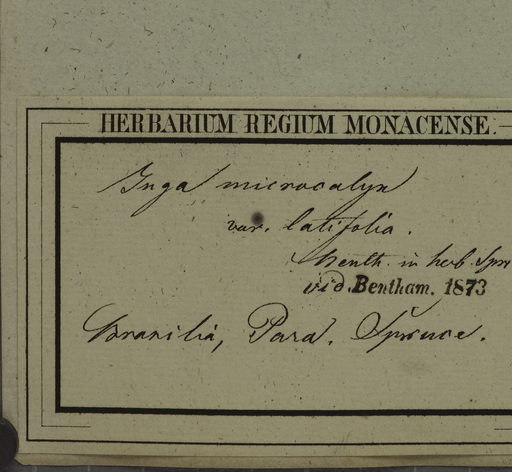 HERBARIUM REGIUM MONACENSE.
Inga microcalyx
var. latifolia.
Benth. in herb. Spr
vid. Bentham. 1873
Brasilia, Para. Spruce.